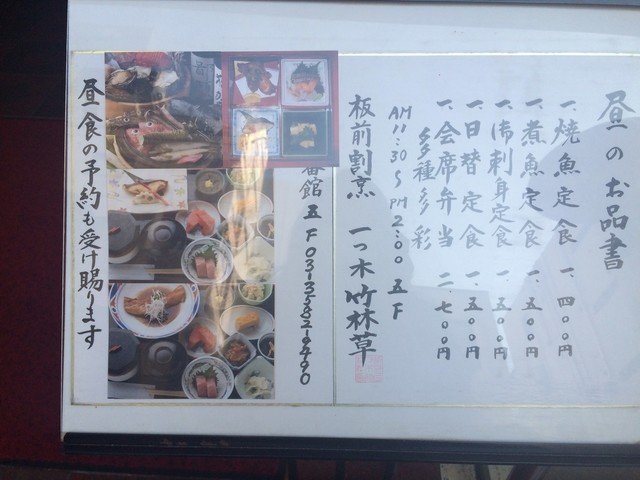 昼のお品書
一、焼魚定食 一、四〇〇円
一、煮魚定食 一、五〇〇円
一、御刺身定食 一、五〇〇円
一、日替定食 一、五〇〇円
一、会席弁当 二、七〇〇円
多種多彩
AM11:30〜PM2:00 五F
板前割烹 一つ木竹林草
番館 五F 03-3582-9490
昼食の予約も受け賜ります